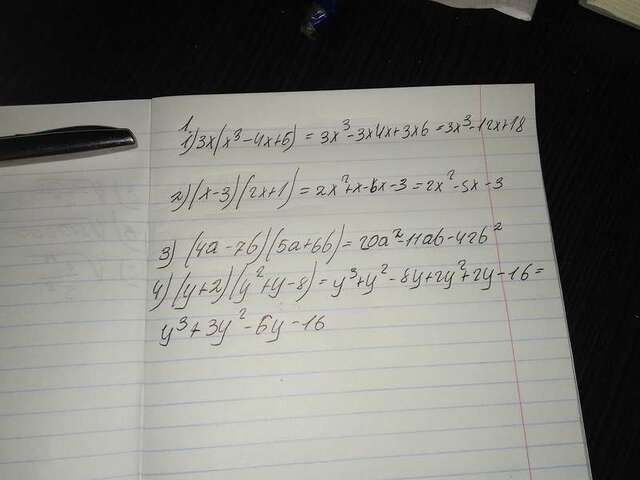 1.
1) 3x(x³-4x+6) = 3x³-3x4x+3x6 = 3x³-12x+18
2) (x-3)(2x+1) = 2x²+x-6x-3 = 2x²-5x-3
3) (4a-7b)(5a+6b) = 20a²-11ab-42b²
4) (y+2)(y²+y-8) = y³+y²-8y+2y²+2y-16 =
y³+3y²-6y-16